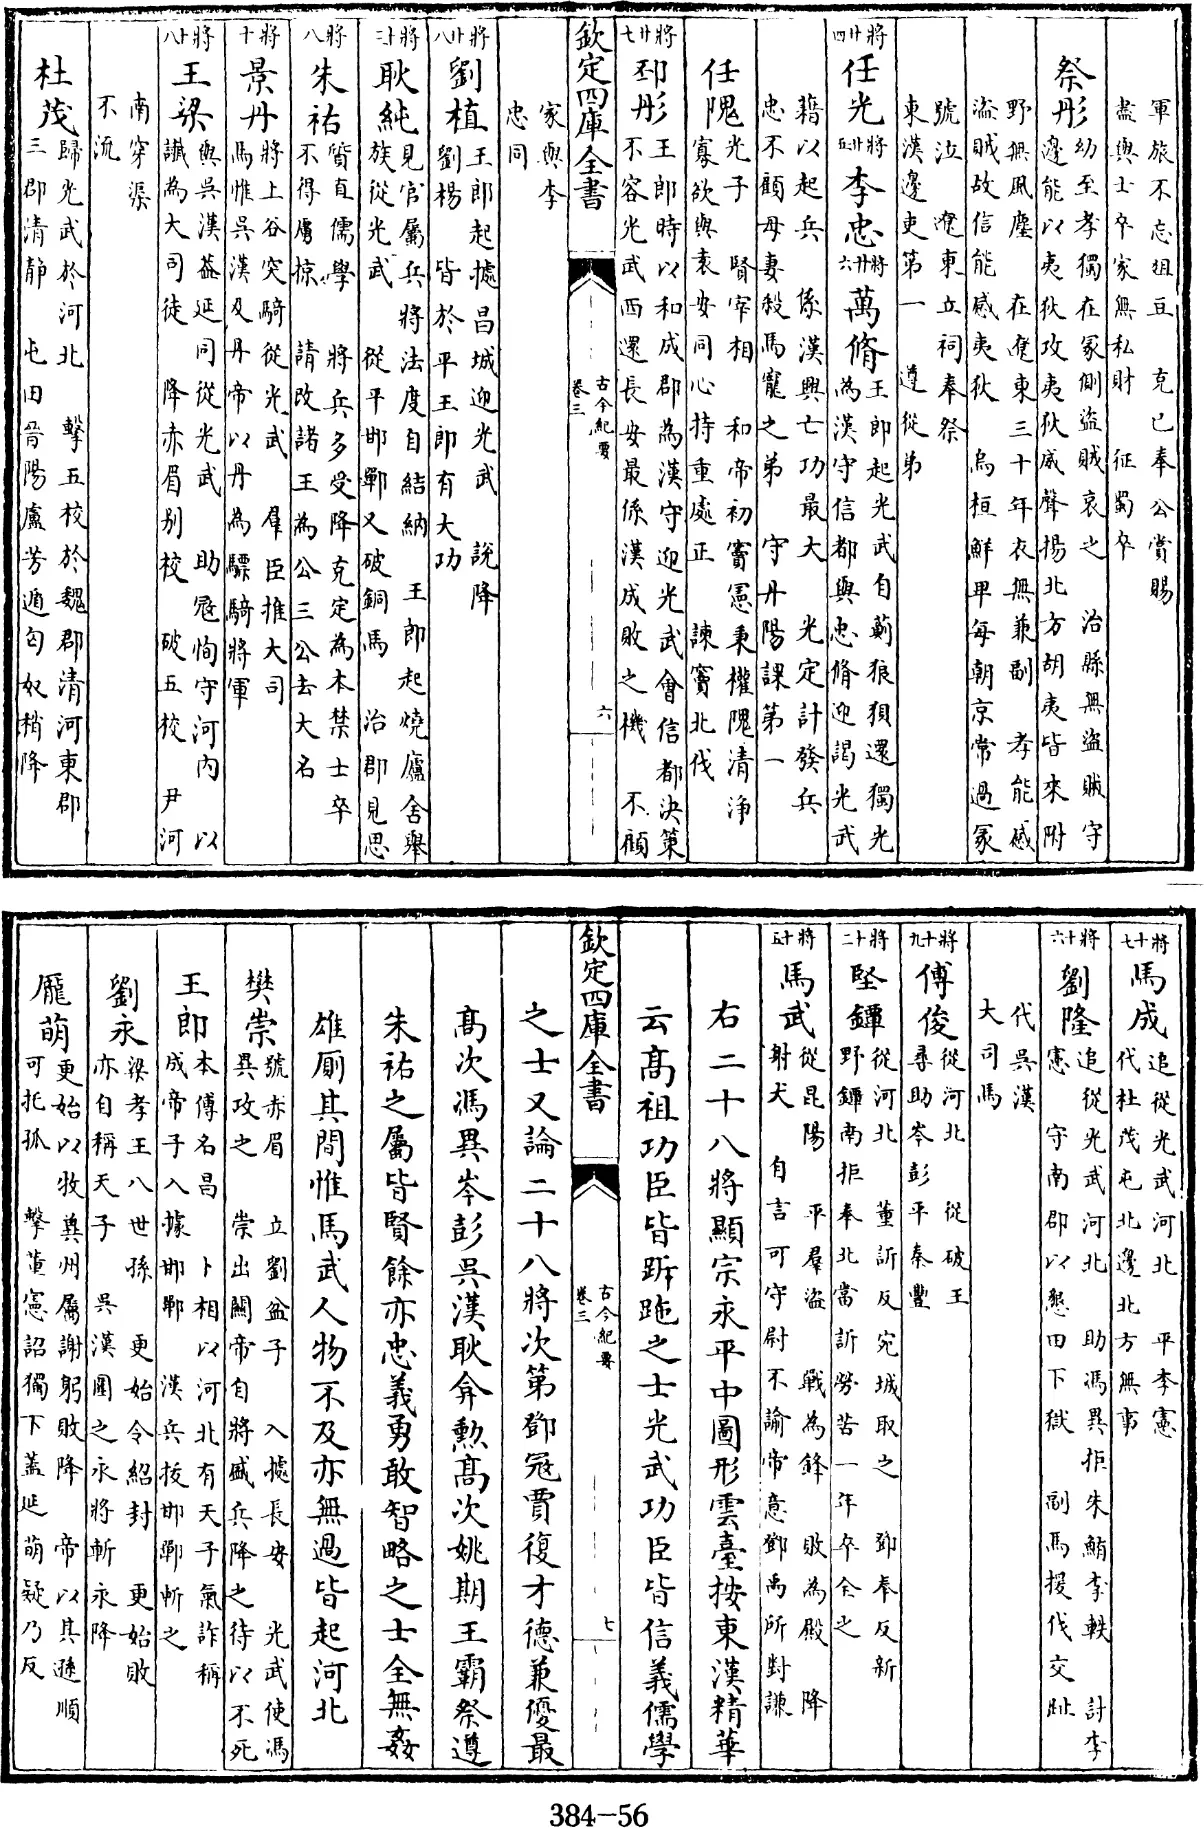 軍旅不忘俎豆　克已奉公賞賜
盡與士卒家無私財　征蜀卒
祭彤
幼至孝獨在冢側盜賊哀之　治縣無盜賊　守
邊能以夷狄攻夷狄威聲揚北方胡夷皆來附
野無風塵　在遼東三十年衣無兼副　孝能感
盜賊故信能感夷狄　烏桓鮮卑每朝京常過冢
號泣　遼東立祠奉祭
東漢邊吏第一　遵從弟
將廿四　任光　將廿五　李忠　將廿六　萬脩
王郎起光武自薊狼狽還獨光
為漢守信都與忠脩迎謁光武
藉以起兵　係漢興亡功最大　光定計發兵
忠不顧母妻殺馬寵之弟　守丹陽課第一
任隗
光子　賢宰相　和帝初竇憲秉權隗清淨
寡欲與袁安同心持重處正　諫竇北伐
將廿七　邳彤
王郎時以和成郡為漢守迎光武會信都決策
不容光武西還長安最係漢成敗之機　不顧
欽定四庫全書
古今紀要
卷三
六
家與李
忠同
將廿八　劉植
王郎起據昌城迎光武　說降
劉楊　皆於平王郎有大功
將十三　耿純
見官屬兵將法度自結納　王郎起燒廬舍舉
族從光武　從平邯鄲又破銅馬　治郡見思
將八　朱祐
質直儒學　將兵多受降克定為本禁士卒
不得虜掠　請改諸王為公三公去大名
將十　景丹
將上谷突騎從光武　羣臣推大司
馬惟吳漢及丹帝以丹為驃騎將軍
將十八　王梁
與吳漢蓋延同從光武　助寇恂守河內　以
讖為大司徒　降赤眉别校　破五校　尹河
南穿渠
不流
杜茂
歸光武於河北　擊五校於魏郡清河東郡
三郡清静　屯田晉陽盧芳遁匈奴稍降
將十七　馬成
追從光武河北　平李憲
代杜茂屯北邊北方無事
將十六　劉隆
追從光武河北　助馮異拒朱鮪李軼　討李
憲　守南郡以懇田下獄　副馬援伐交趾
代吳漢
大司馬
將十九　傅俊
從河北　從破王
尋助岑彭平秦豐
將二十　堅鐔
從河北　董訢反宛城取之　鄧奉反新
野鐔南拒奉北當訢勞苦一年卒全之
將十五　馬武
從昆陽　平羣盜　戰為鋒　敗為殿　降
射犬　自言可守尉不諭帝意鄧禹所對謙
右二十八將顯宗永平中圖形雲臺按東漢精華
云髙祖功臣皆跅跑之士光武功臣皆信義儒學
欽定四庫全書
古今紀要
卷三
七
之士又論二十八將次第鄧冦賈復才德兼優最
髙次馮異岑彭吳漢耿弇勲髙次姚期王霸祭遵
朱祐之屬皆賢餘亦忠義勇敢智略之士全無姦
雄厠其間惟馬武人物不及亦無過皆起河北
樊崇
號赤眉　立劉盆子　入據長安　光武使馮
異攻之　崇出關帝自將盛兵降之待以不死
王郎
本傅名昌　卜相以河北有天子氣詐稱
成帝子入據邯鄲　漢兵拔邯鄲斬之
劉永
梁孝王八世孫　更始令紹封　更始敗
亦自稱天子　吳漢圍之永將斬永降
龐萌
更始以牧兾州屬謝躬敗降　帝以其遜順
可托孤　擊董憲詔獨下蓋延　萌疑乃反
384-56